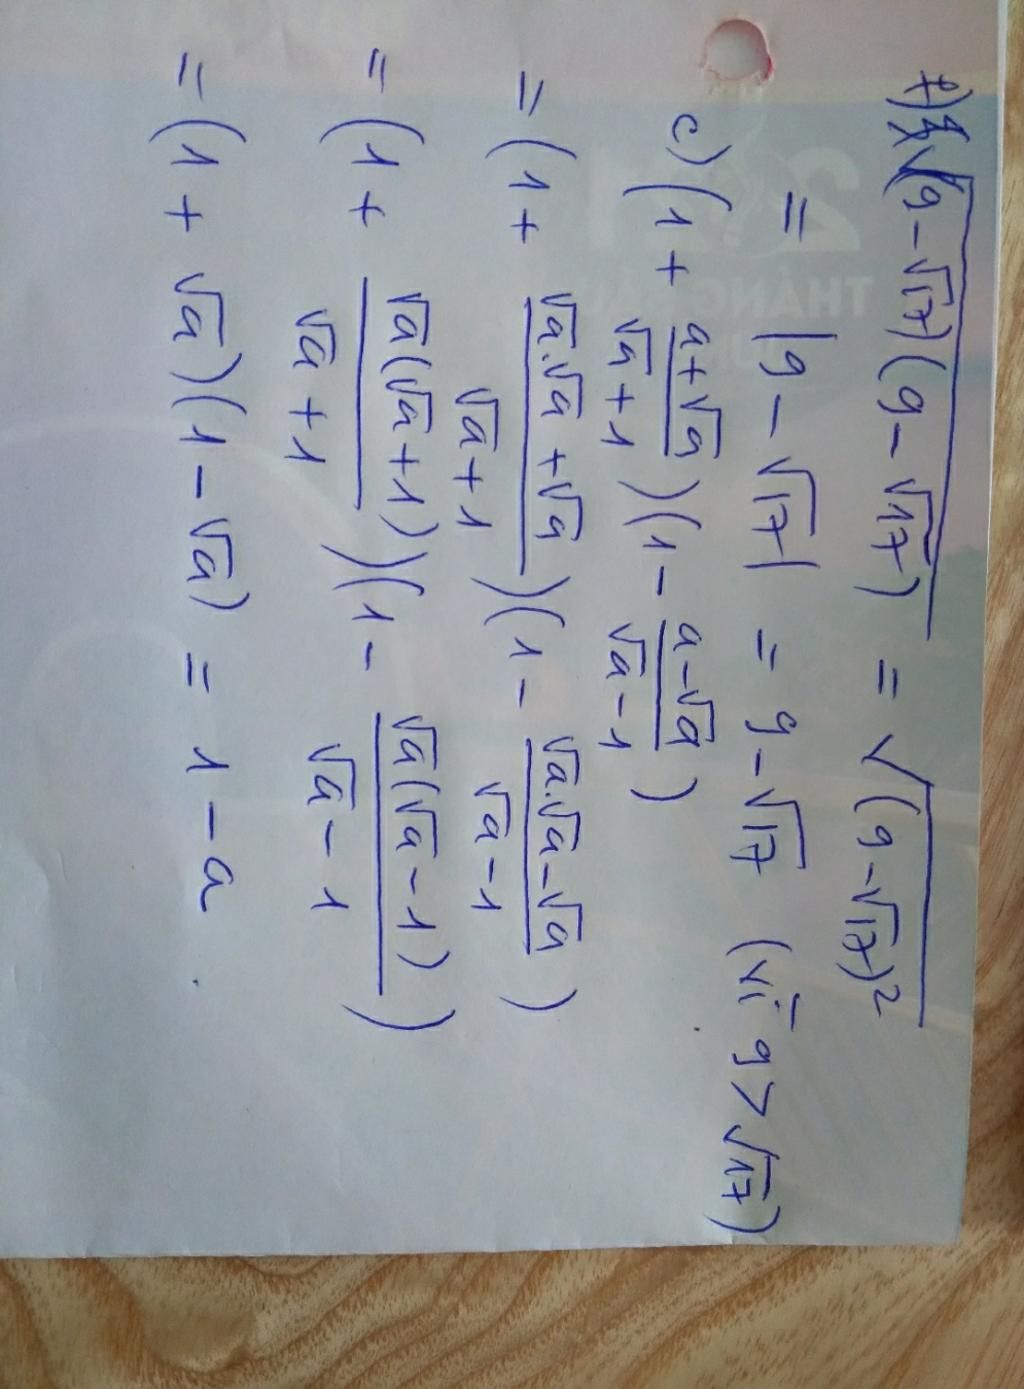 f) √(9-√17)(9-√17) = √(9-√17)²
= |9-√17| = 9-√17 (vì 9>√17)
c) (1 + a+√a / √a+1)(1 - a-√a / √a-1)
= (1 + √a.√a+√a / √a+1)(1 - √a.√a-√a / √a-1)
= (1 + √a(√a+1) / √a+1)(1 - √a(√a-1) / √a-1)
= (1 + √a)(1-√a) = 1-a
THÁNG